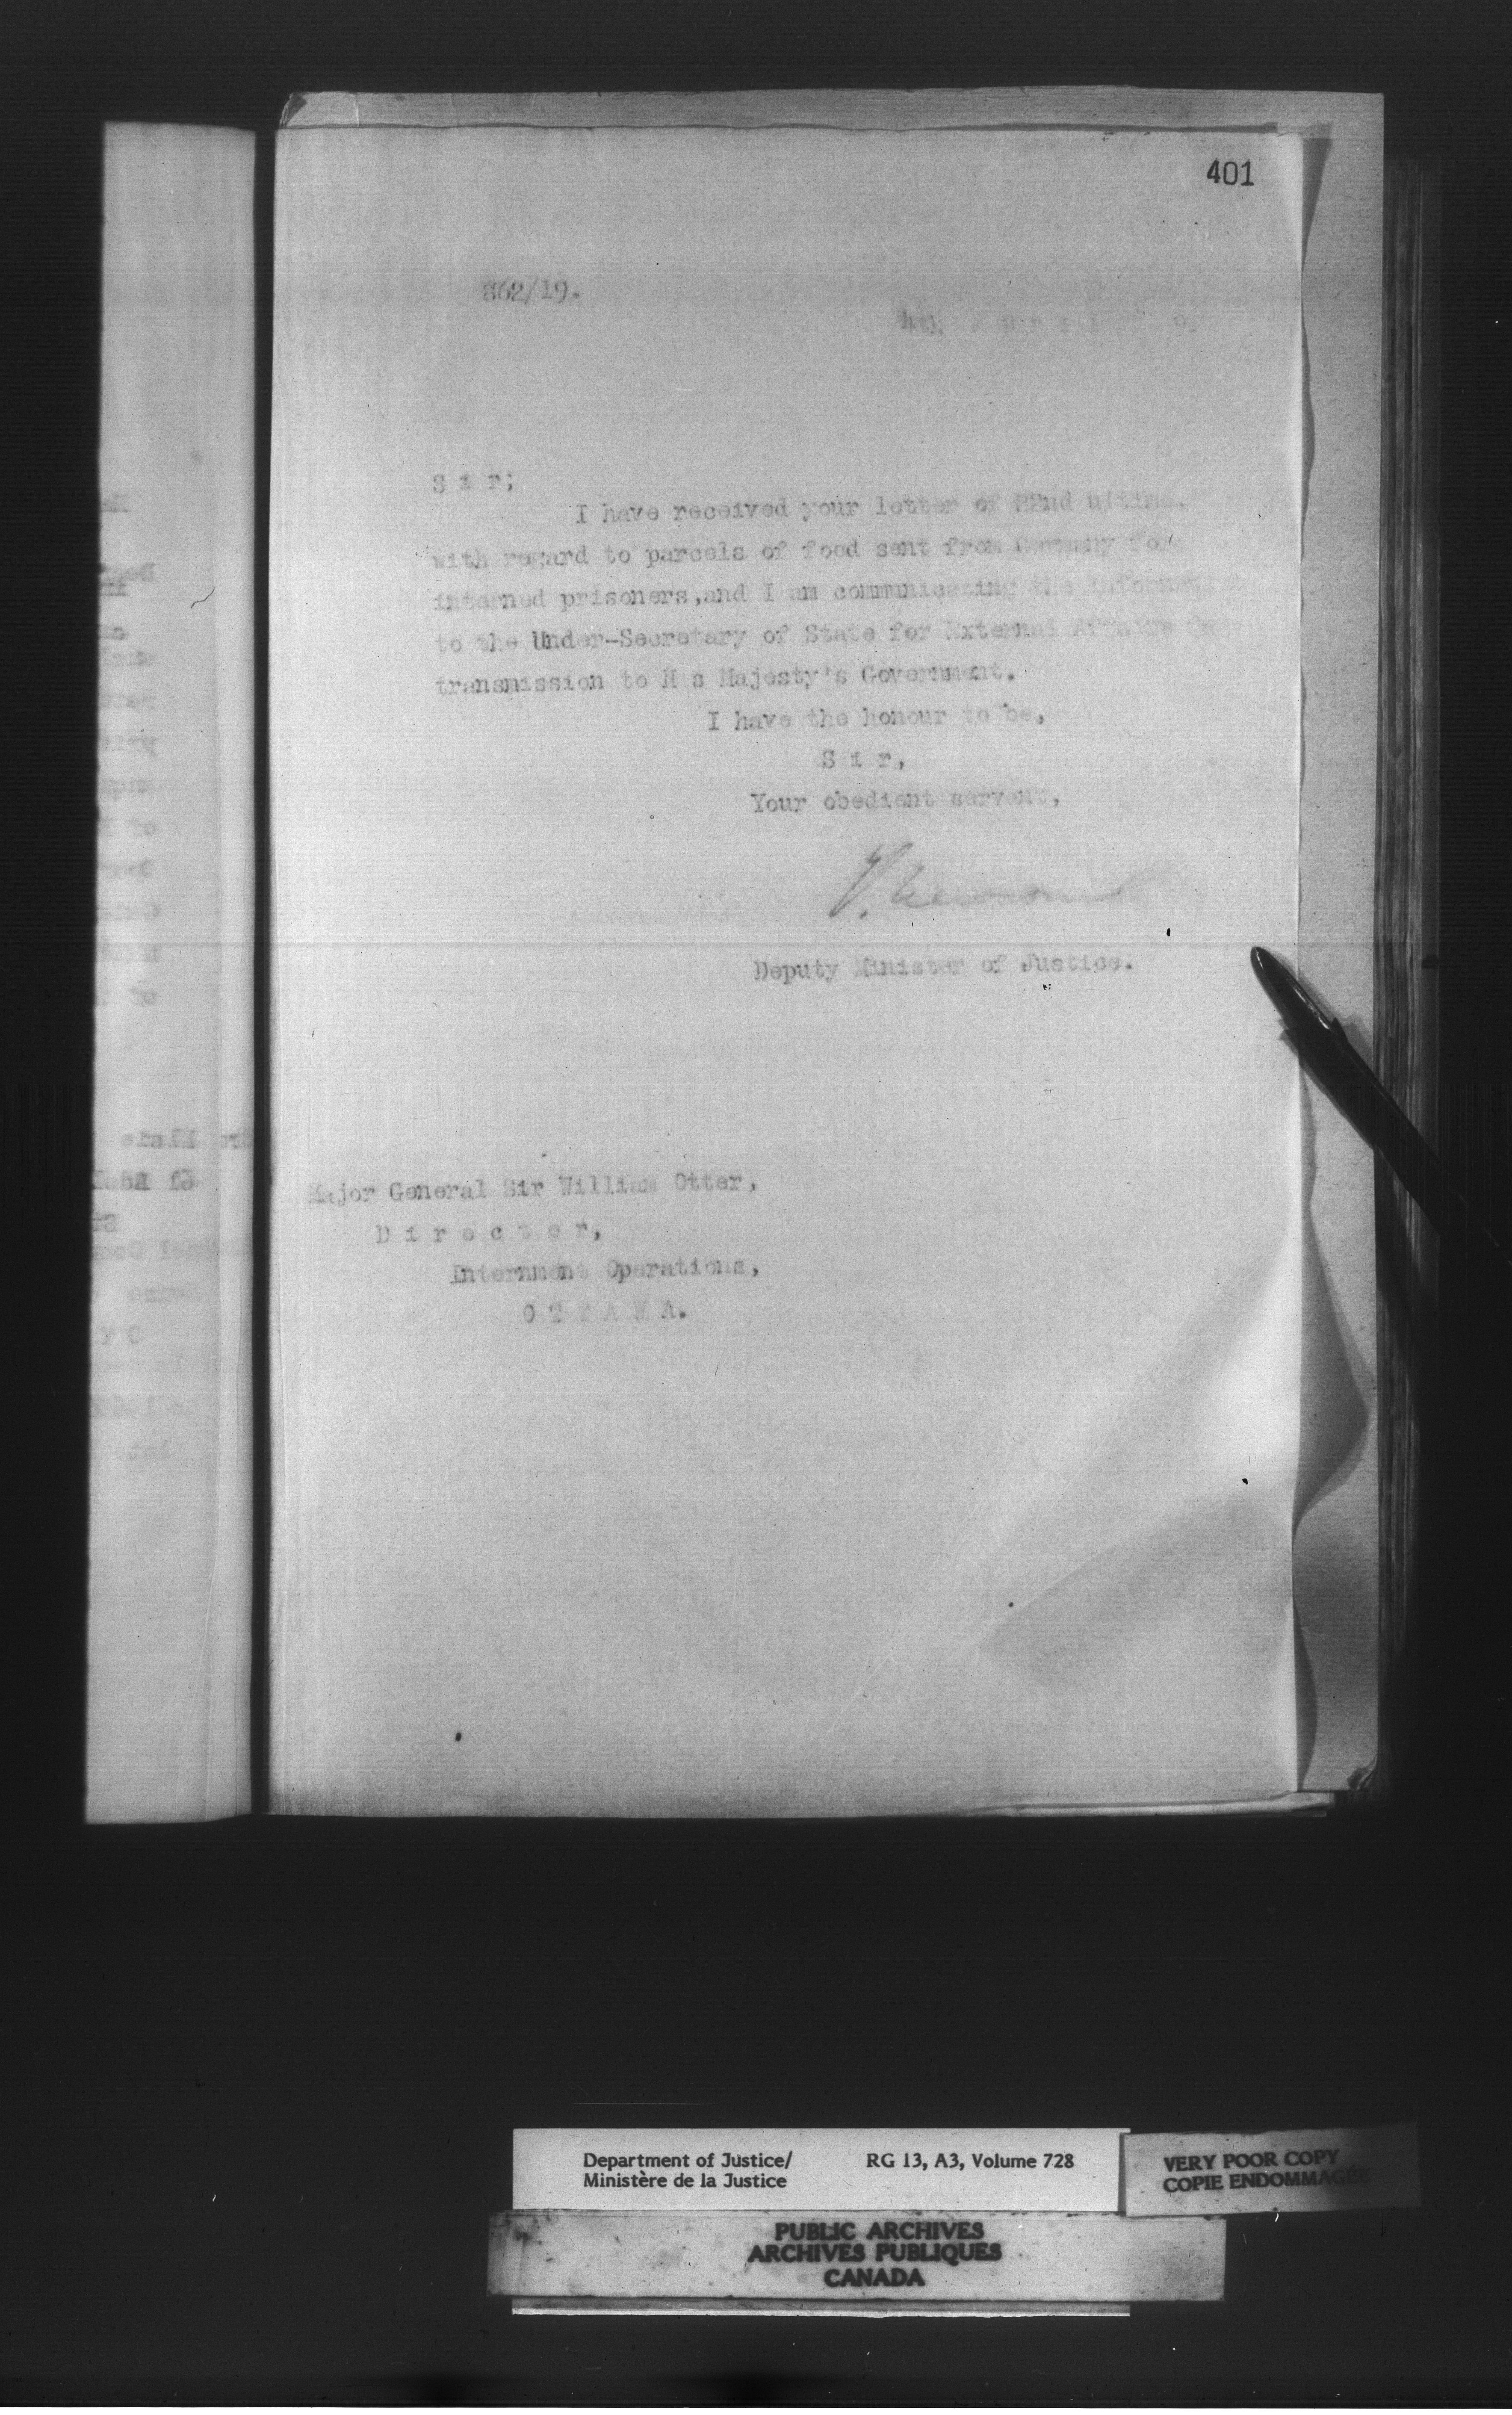 401
862/19.
4th
S i r;
I have received your letter of 22nd ultimo,
with regard to parcels of food sent from Germany for
interned prisoners,and I am communicating the information
to the Under-Secretary of State for External Affairs for
transmission to His Majesty's Government.
I have the honour to be,
S i r,
Your obedient servant,
Deputy Minister of Justice.
Major General Sir William Otter,
D i r e c t o r,
Internment Operations,
O T T A W A.
Department of Justice/
Ministère de la Justice
RG 13, A3, Volume 728
VERY POOR COPY
COPIE ENDOMMAGÉE
PUBLIC ARCHIVES
ARCHIVES PUBLIQUES
CANADA